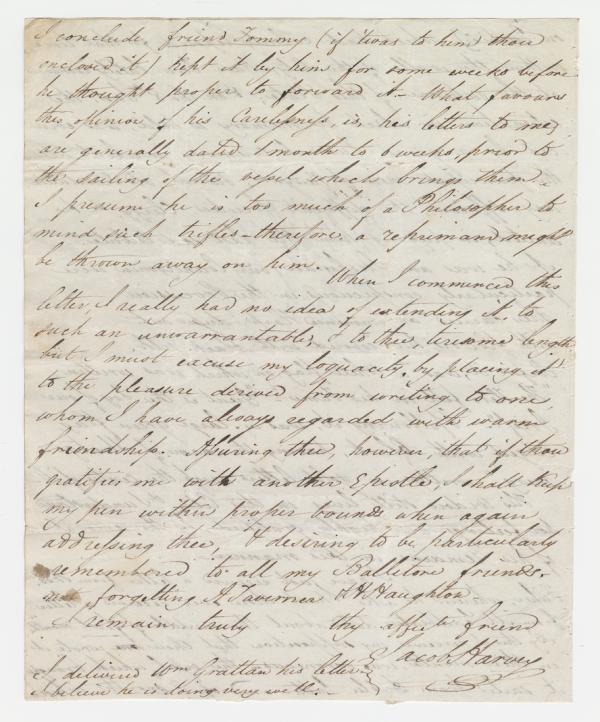 I conclude, friend Tommy (if 'twas to him thou
enclosed it) kept it by him for some weeks before
he thought proper to forward it - What favours
this opinion of his Carelessness, is, his letters to me
are generally dated 1 month to 6 weeks, prior to
the sailing of the vessel which brings them.
I presume he is too much of a Philosopher to
mind such trifles - therefore a reprimand might
be thrown away on him.
When I commenced this
letter, I really had no idea of extending it, to
such an unwarrantable, & to thee, tiresome length
but I must excuse my loquacity, by placing it
to the pleasure derived from writing to one
whom I have always regarded with warm
friendship. Assuring thee, however, that if thou
gratifies me with another Epistle, I shall keep
my pen within proper bounds when again
addressing thee, & desiring to be particularly
remembered to all my Ballitore friends.
not forgetting A Taverner & Haughton
I remain truly thy affecte friend
Jacob Harvey
I delivered Wm Grattan his letter
I believe he is doing very well. -